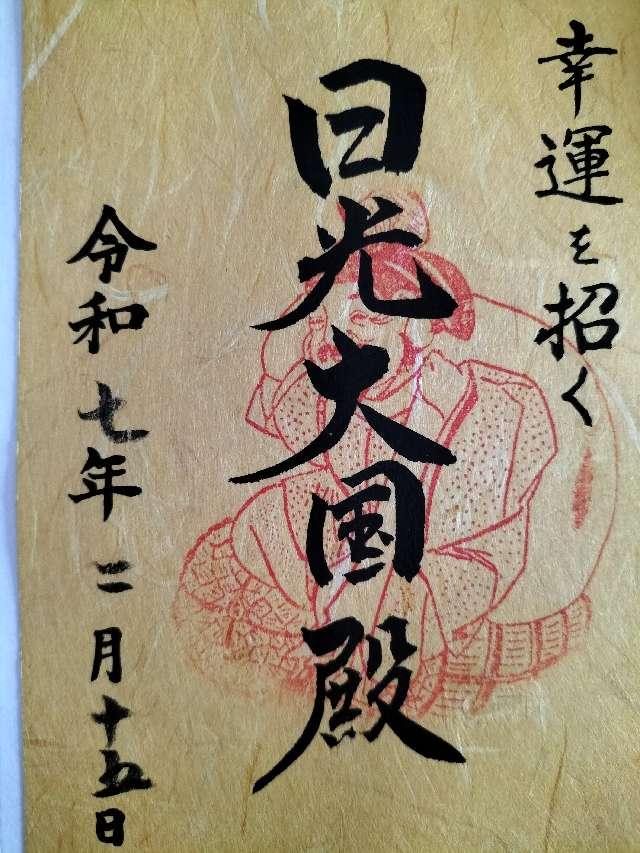 幸運を招く
日光大国殿
令和七年二月十五日